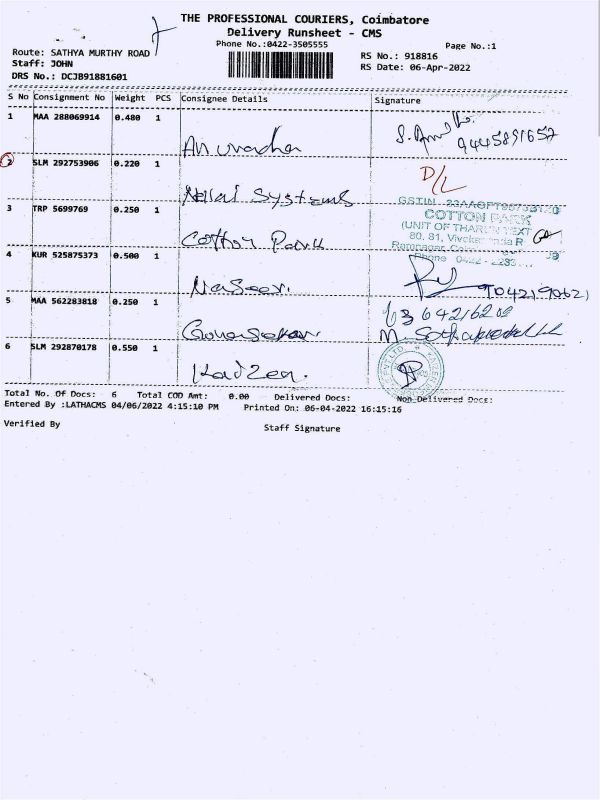 THE PROFESSIONAL COURIERS, Coimbatore
Delivery Runsheet - CMS
Phone No.:0422-3505555
Page No.:1
Route: SATHYA MURTHY ROAD
Staff: JOHN
DRS No.: DCJB91881601
RS No.: 918816
RS Date: 06-Apr-2022
S No Consignment No Weight PCS Consignee Details Signature
1 MAA 288069914 0.480 1
Anuradha 9445891657
2 SLM 292753906 0.220 1
Systems D/L
3 TRP 5699769 0.250 1
Cotton Park
GSTIN
COTTON PARK
(UNIT OF THARUN TEXT
80, 81,
Ramnagar,
Phone 0422 - 2233
4 KUR 525875373 0.500 1
Naseer.
5 MAA 562283818 0.250 1
Gunasekar
6 SLM 292870178 0.550 1
Kaizen.
Total No. Of Docs: 6 Total COD Amt: 0.00 Delivered Docs: Non Delivered Docs:
Entered By :LATHACMS 04/06/2022 4:15:10 PM Printed On: 06-04-2022 16:15:16
Verified By Staff Signature